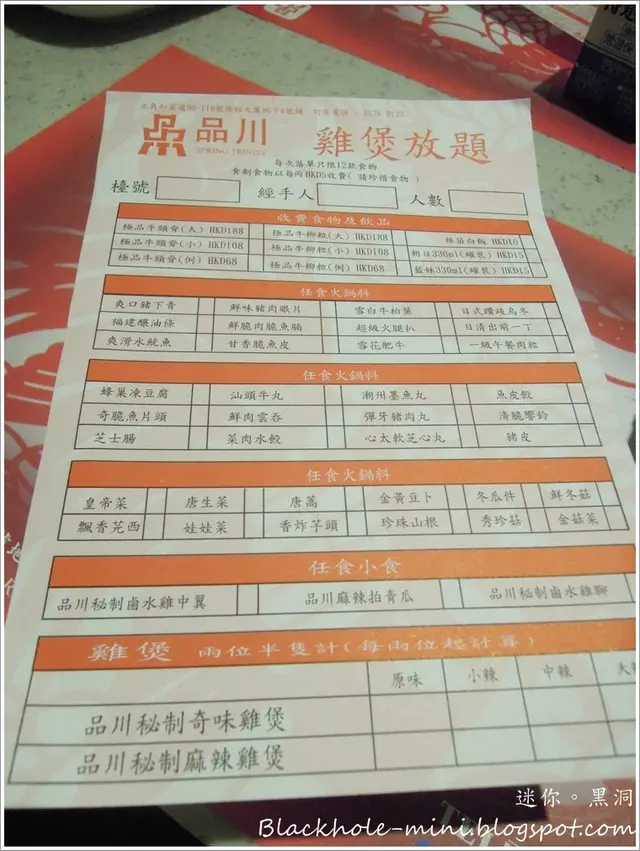 北角和富道98-119號僑裕大廈地下4號舖 訂座電話：3578 8123
品川 雞煲放題
SPRING TRINITY
每次落單只限12款食物
食剩食物以每両HKD5收費（請珍惜食物）
檯號 經手人 人數
收費食物及飲品
極品牛頸脊(大) HKD188 極品牛柳粒(大) HKD188 絲苗白飯 HKD10
極品牛頸脊(小) HKD108 極品牛柳粒(小) HKD108 朝日330ml(罐裝) HKD15
極品牛頸脊(例) HKD68 極品牛柳粒(例) HKD68 藍妹330ml(罐裝) HKD15
任食火鍋料
爽口豬下青 鮮味豬肉眼片 雪白牛柏葉 日式讚岐烏冬
福建釀油條 鮮脆肉脆魚腩 超級火腿扒 日清出前一丁
爽滑水魷魚 甘香脆魚皮 雪花肥牛 一級午餐肉粒
任食火鍋料
蜂巢凍豆腐 汕頭牛丸 潮州墨魚丸 魚皮餃
奇脆魚片頭 鮮肉雲吞 彈牙豬肉丸 清脆響鈴
芝士腸 菜肉水餃 心太軟芝心丸 豬皮
任食火鍋料
皇帝菜 唐生菜 唐蒿 金黃豆卜 冬瓜件 鮮冬菇
飄香芫西 娃娃菜 香炸芋頭 珍珠山根 秀珍菇 金菇菜
任食小食
品川秘制鹵水雞中翼 品川麻辣拍青瓜 品川秘制鹵水雞腳
雞煲 兩位半隻計(每兩位起計算)
原味 小辣 中辣 大
品川秘制奇味雞煲
品川秘制麻辣雞煲
迷你。黑洞
Blackhole-mini.blogspot.com